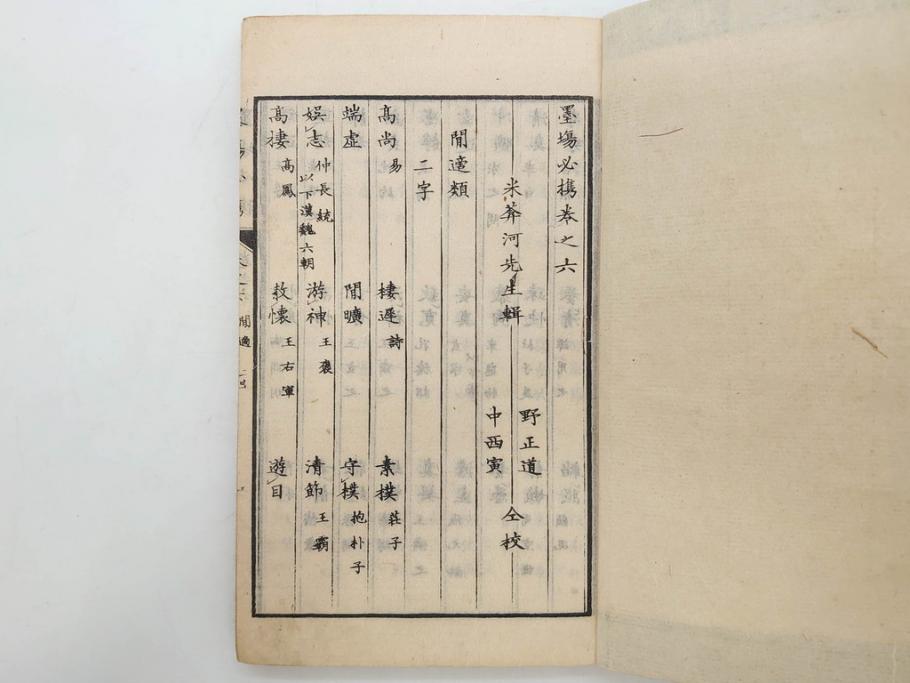 墨塲必擕卷之六
米葊河先生輯
野正道
中西寅
仝校
閒適類
二字
髙尚 易 棲遲 詩 素樸 莊子
端虛 閒曠 守樸 抱朴子
娯志 仲長統 以下漢魏六朝 游神 王褒 清節 王霸
髙棲 高鳳 王右軍 遊目
閒適